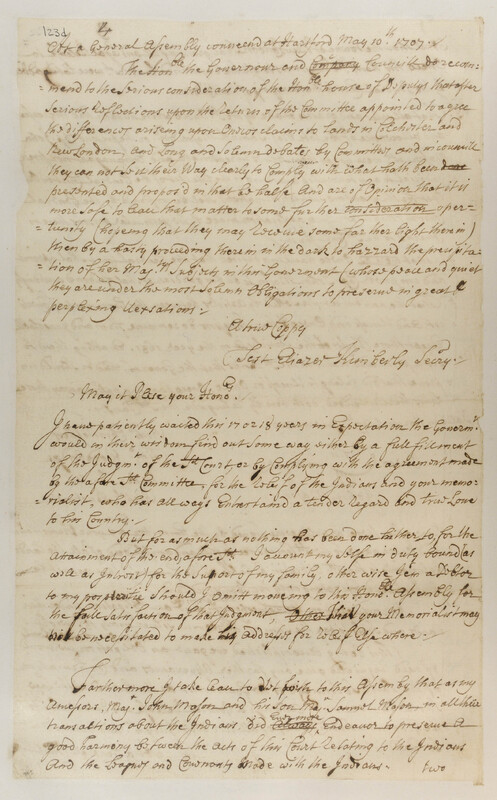 123d 4
Att a General Assembly conven'd at Hartford May 10th 1707.
The Honble the Governour and Company Councill Do recom=
=mend to the Serious consideration of the Honble house of Deputys that after
Serious Reflections upon the return of the Committee appointed to agree
the differences arising upon Owenecos claims to Lands in Colchester and
New London, and Long and Solemn debates by Committees and in council
they can not see their Way clearly to Comply with what hath been
presented and propos'd in that be halfe And are of Opinion that it is
more Safe to leave that matter to some further consideration oper-
=tunity (hoping that they may receive some farther light therein)
then by a hasty proceeding therein in the dark to hazzard the
=tion of her Majties Subjects in this Goverment (whose peace and quiet
they are under the most Solemn Obligations to preserve in great &
perplexing Vexsations.
A true Coppy
Test Eliazer Kimberly Secry.
May it Please your Honrs
I have patiently waited this 17 or 18 years in Expectation the Governmt
would in their wisdom find out Some way either by a full fulfilment
of the Judgmt of the sd Court, or by Complying with the agreement made
by the afore sd Committee, for the relief of the Indians and your memor-
=ialist, who has all ways Entertained a tender regard and true Love
to his Country.
But for as much as nothing has been done hither to, for the
attainment of the end afore sd. I account my Self in duty bound as
well as Intrest for the Support of my family, other wise I am a Debtor
to my posterity Should I Omitt moving to this Honble Assembly for
the full Satisfaction of that Judgment, your Memorialist may
be necessitated to make his address for relief Else where.
Farthermore I take leave to Set forth to this Assembly that as my
Ancesors, Majr John Mason and his Son Mr Samuel Mason in all their
transactions about the Indians Did Always Ever more Endeavor to preserve A
good harmony betwen the Acts of this Court Relating to the Indians
And the Leagues and Covenants Made with the Indians.
two